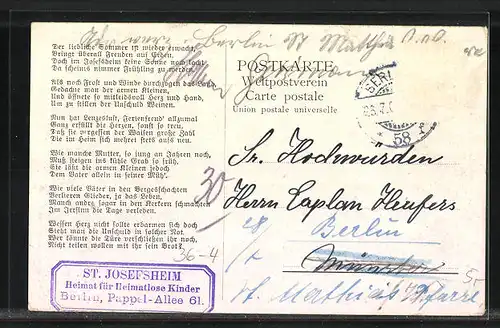 Berlin St Matthias
POSTKARTE
Weltpostverein
Carte postale
Union postale universelle
Der liebliche Sommer ist wieder erwacht,
Bringt überall Freuden auf Erden.
Doch im Josefsheim keine Sonne noch lacht
Da scheints nimmer Frühling zu werden.
Als noch Frost und Winde durchzogen das Land
Gedachte man der armen Kleinen,
Und öffnete so mitleidsvoll Herz und Hand,
Um zu stillen der Unschuld Weinen.
Nun hat Lenzesluft, Ferienfreud' allzumal
Ganz erfüllt die Herzen, sonst so treu,
Daß sie vergessen der Waisen große Zahl
Die im Heim sich mehret stets aufs neu.
Wie manche Mutter, so jung an Jahren noch
Muß steigen ins kühle Grab so früh,
Sie läßt die armen Kleinen jedoch
Dem Vater allein in seiner Müh'.
Wie viele Väter in den Bergeschachten
Verlieren Glieder, ja das Leben,
Manch andre sogar in den Kerkern schmachten
Im Irrsinn die Tage verleben.
Wessen Herz nicht sollte erbarmen sich doch
Sieht man die Unschuld in solcher Not.
Wer könnte die Türe verschließen ihr noch,
Nicht teilen wollen mit ihr sein Brot?
BERLIN
58
Sr. Hochwürden
Herrn Caplan Heufers
30
28 Berlin
Münster
St. Matthias Pfarre
36-4
5,-
ST. JOSEFSHEIM
Heimat für Heimatlose Kinder
Berlin, Pappel-Allee 61.